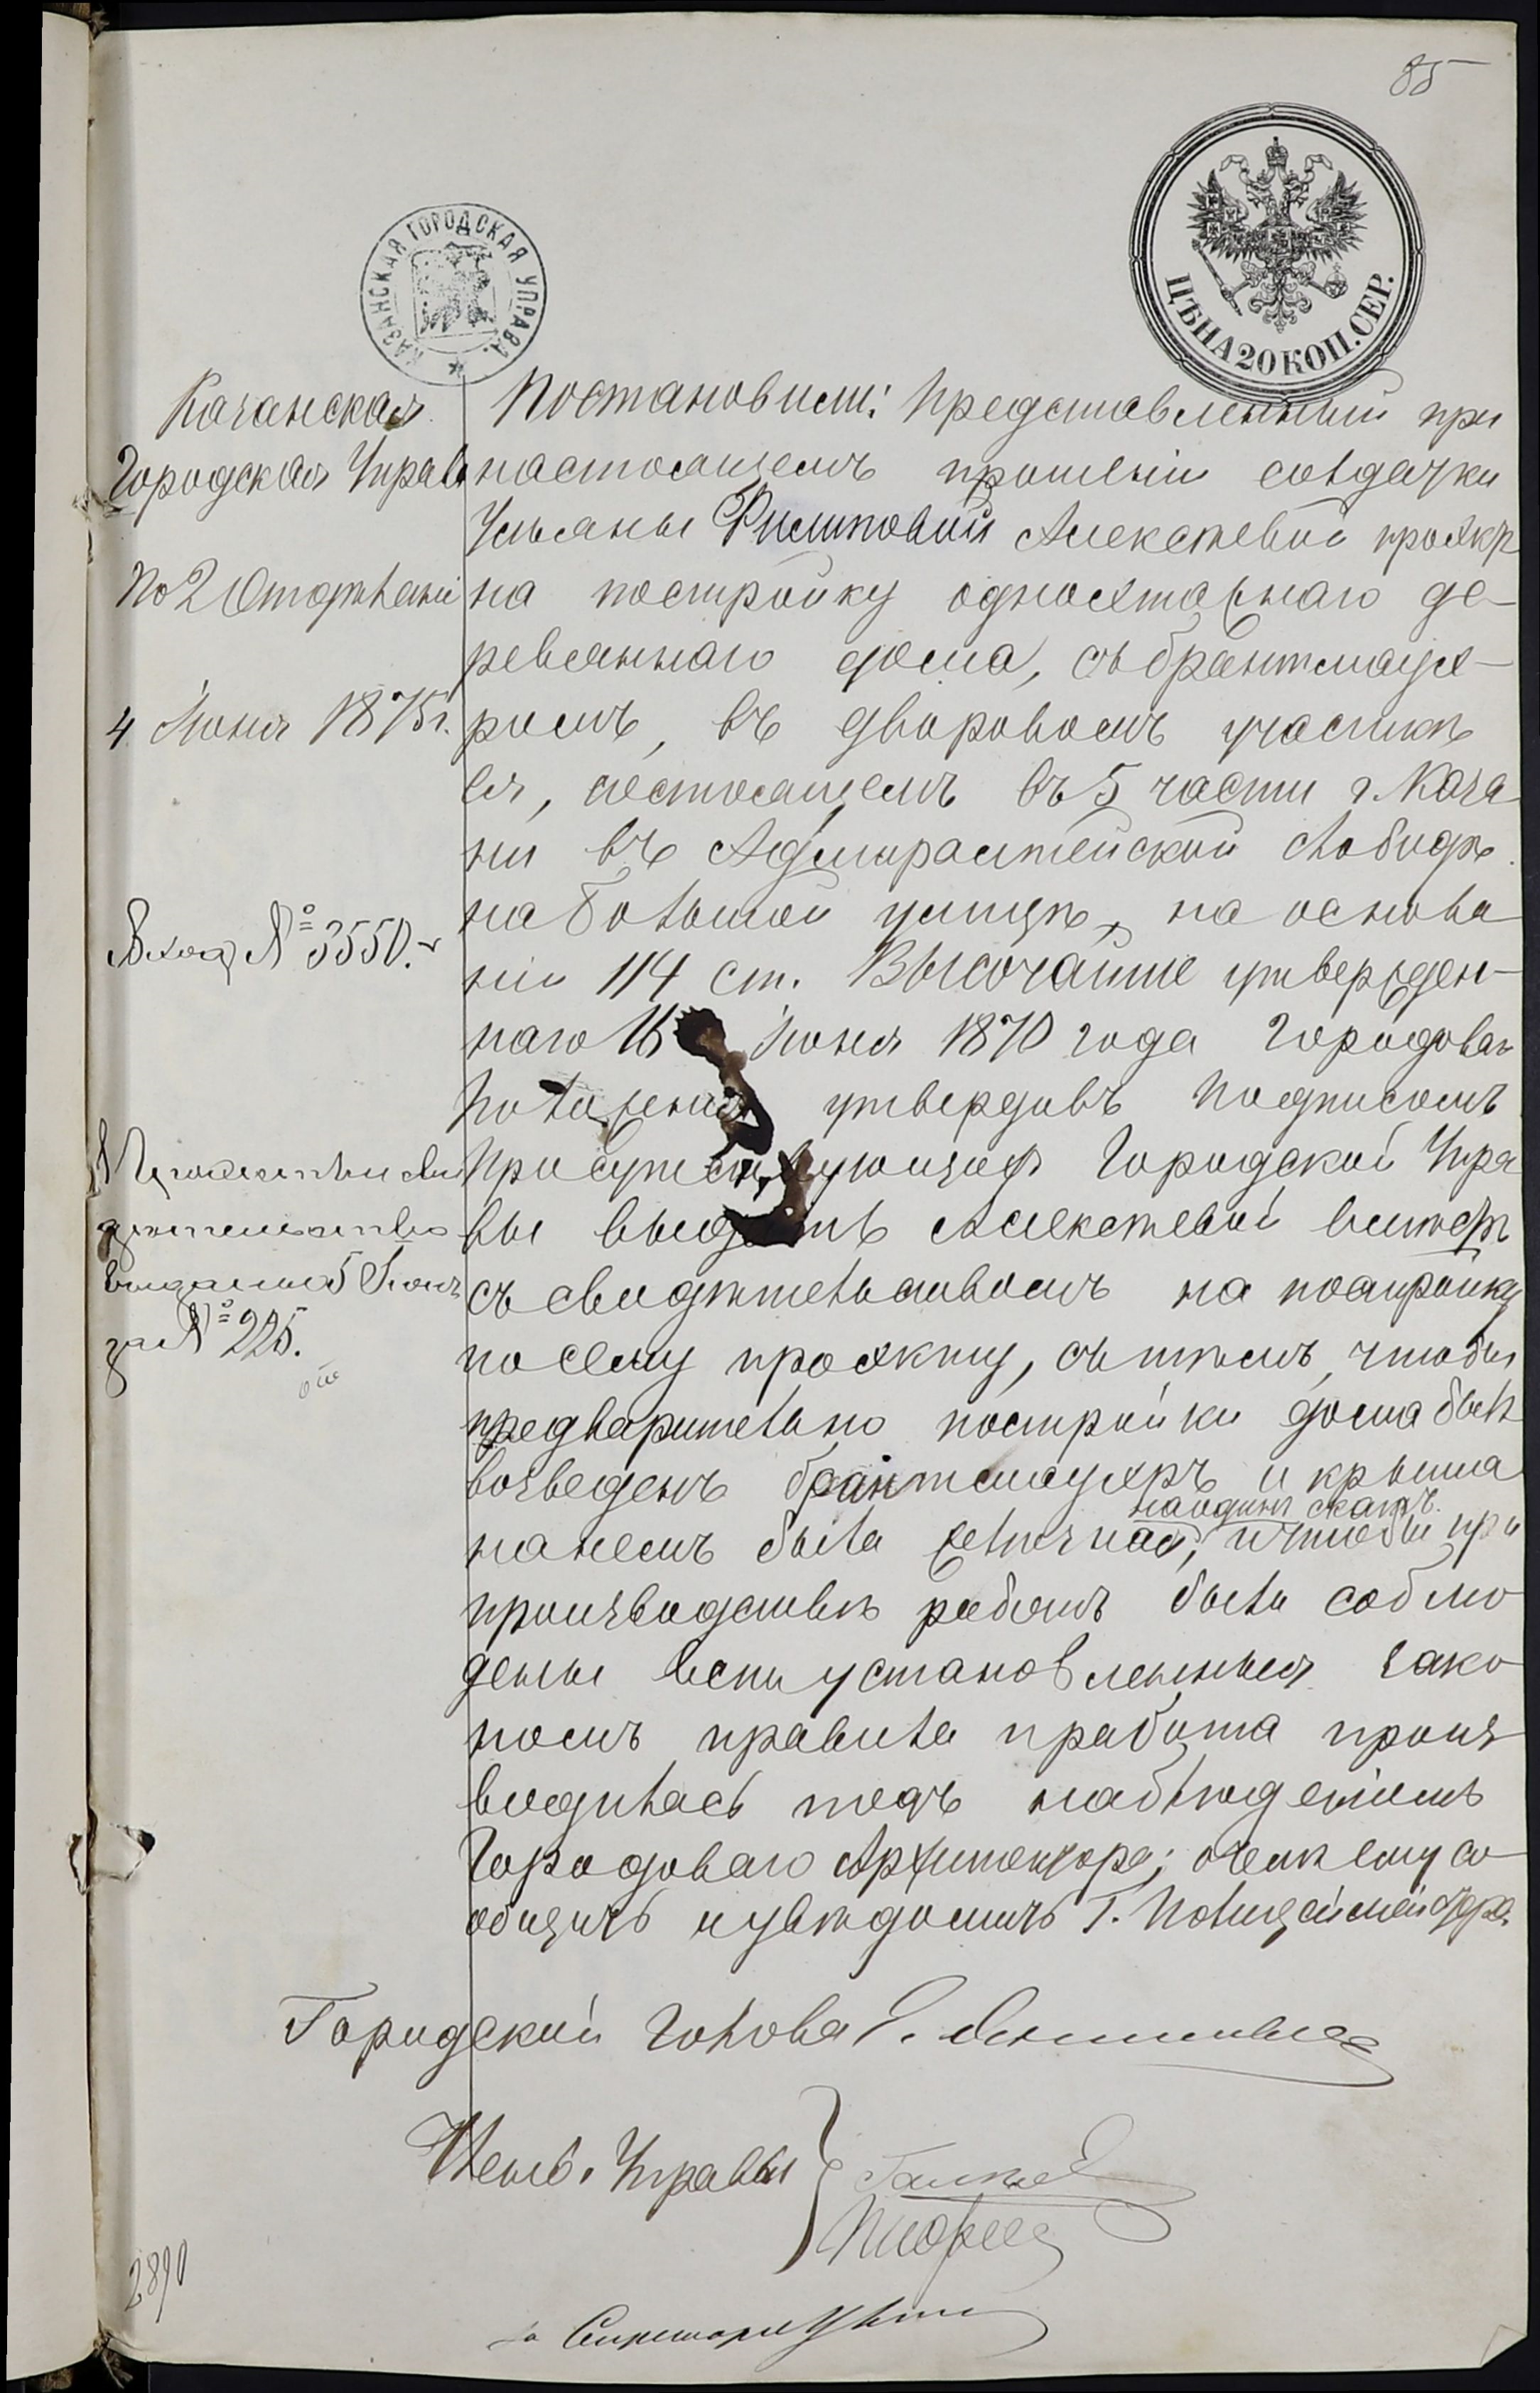 85
КАЗАНСКАЯ ГОРОДСКАЯ УПРАВА.
ЦѢНА 20 КОП. СЕР.
Казанская
Городская Управа
По 2 Отдѣленію
4 Іюня 1875 г.
Вход № 3550.
Проектъ и сви
дѣтельство
выданы 5 Іюня
за № 225.
Постановили: Представленный при
настоящемъ прошеніи солдатки
Ульяны Филиповой Алексѣевой проэктъ
на постройку одноэтажнаго де-
ревяннаго дома, съ брантмауэ-
ромъ, въ дворовомъ участкѣ
ея, состоящемъ въ 5 части г. Каза
ни въ Адмиралтейской слободѣ
на Большой улицѣ, на основа
ніи 114 ст. Высочайше утвержден-
наго 16 Іюня 1870 года Городоваго
Положенія утвердивъ подписомъ
Присутствующихъ Городской Упра
вы выдать Алексѣевой вмѣстѣ
съ свидѣтельствомъ на постройку
по сему проэкту, съ тѣмъ, чтобы
предварительно постройки дома былъ
возведенъ брантмауэръ и крыша
на одинъ скатъ.
на немъ была желѣзная, и чтобы при
производствѣ работъ были соблю
дены всѣ установленныя зако
номъ правила и работа произ
водилась подъ наблюденіемъ
Городоваго Архитектора; о чемъ ему со
общить и увѣдомить Г. Полицеймейстера.
Городской Голова Е.
Члены Управы
За Секретаря
2890